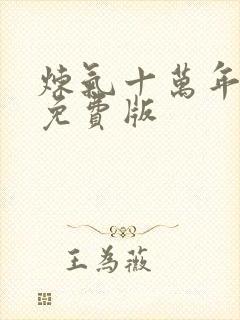 煉氣十萬年
免費版
王為薇